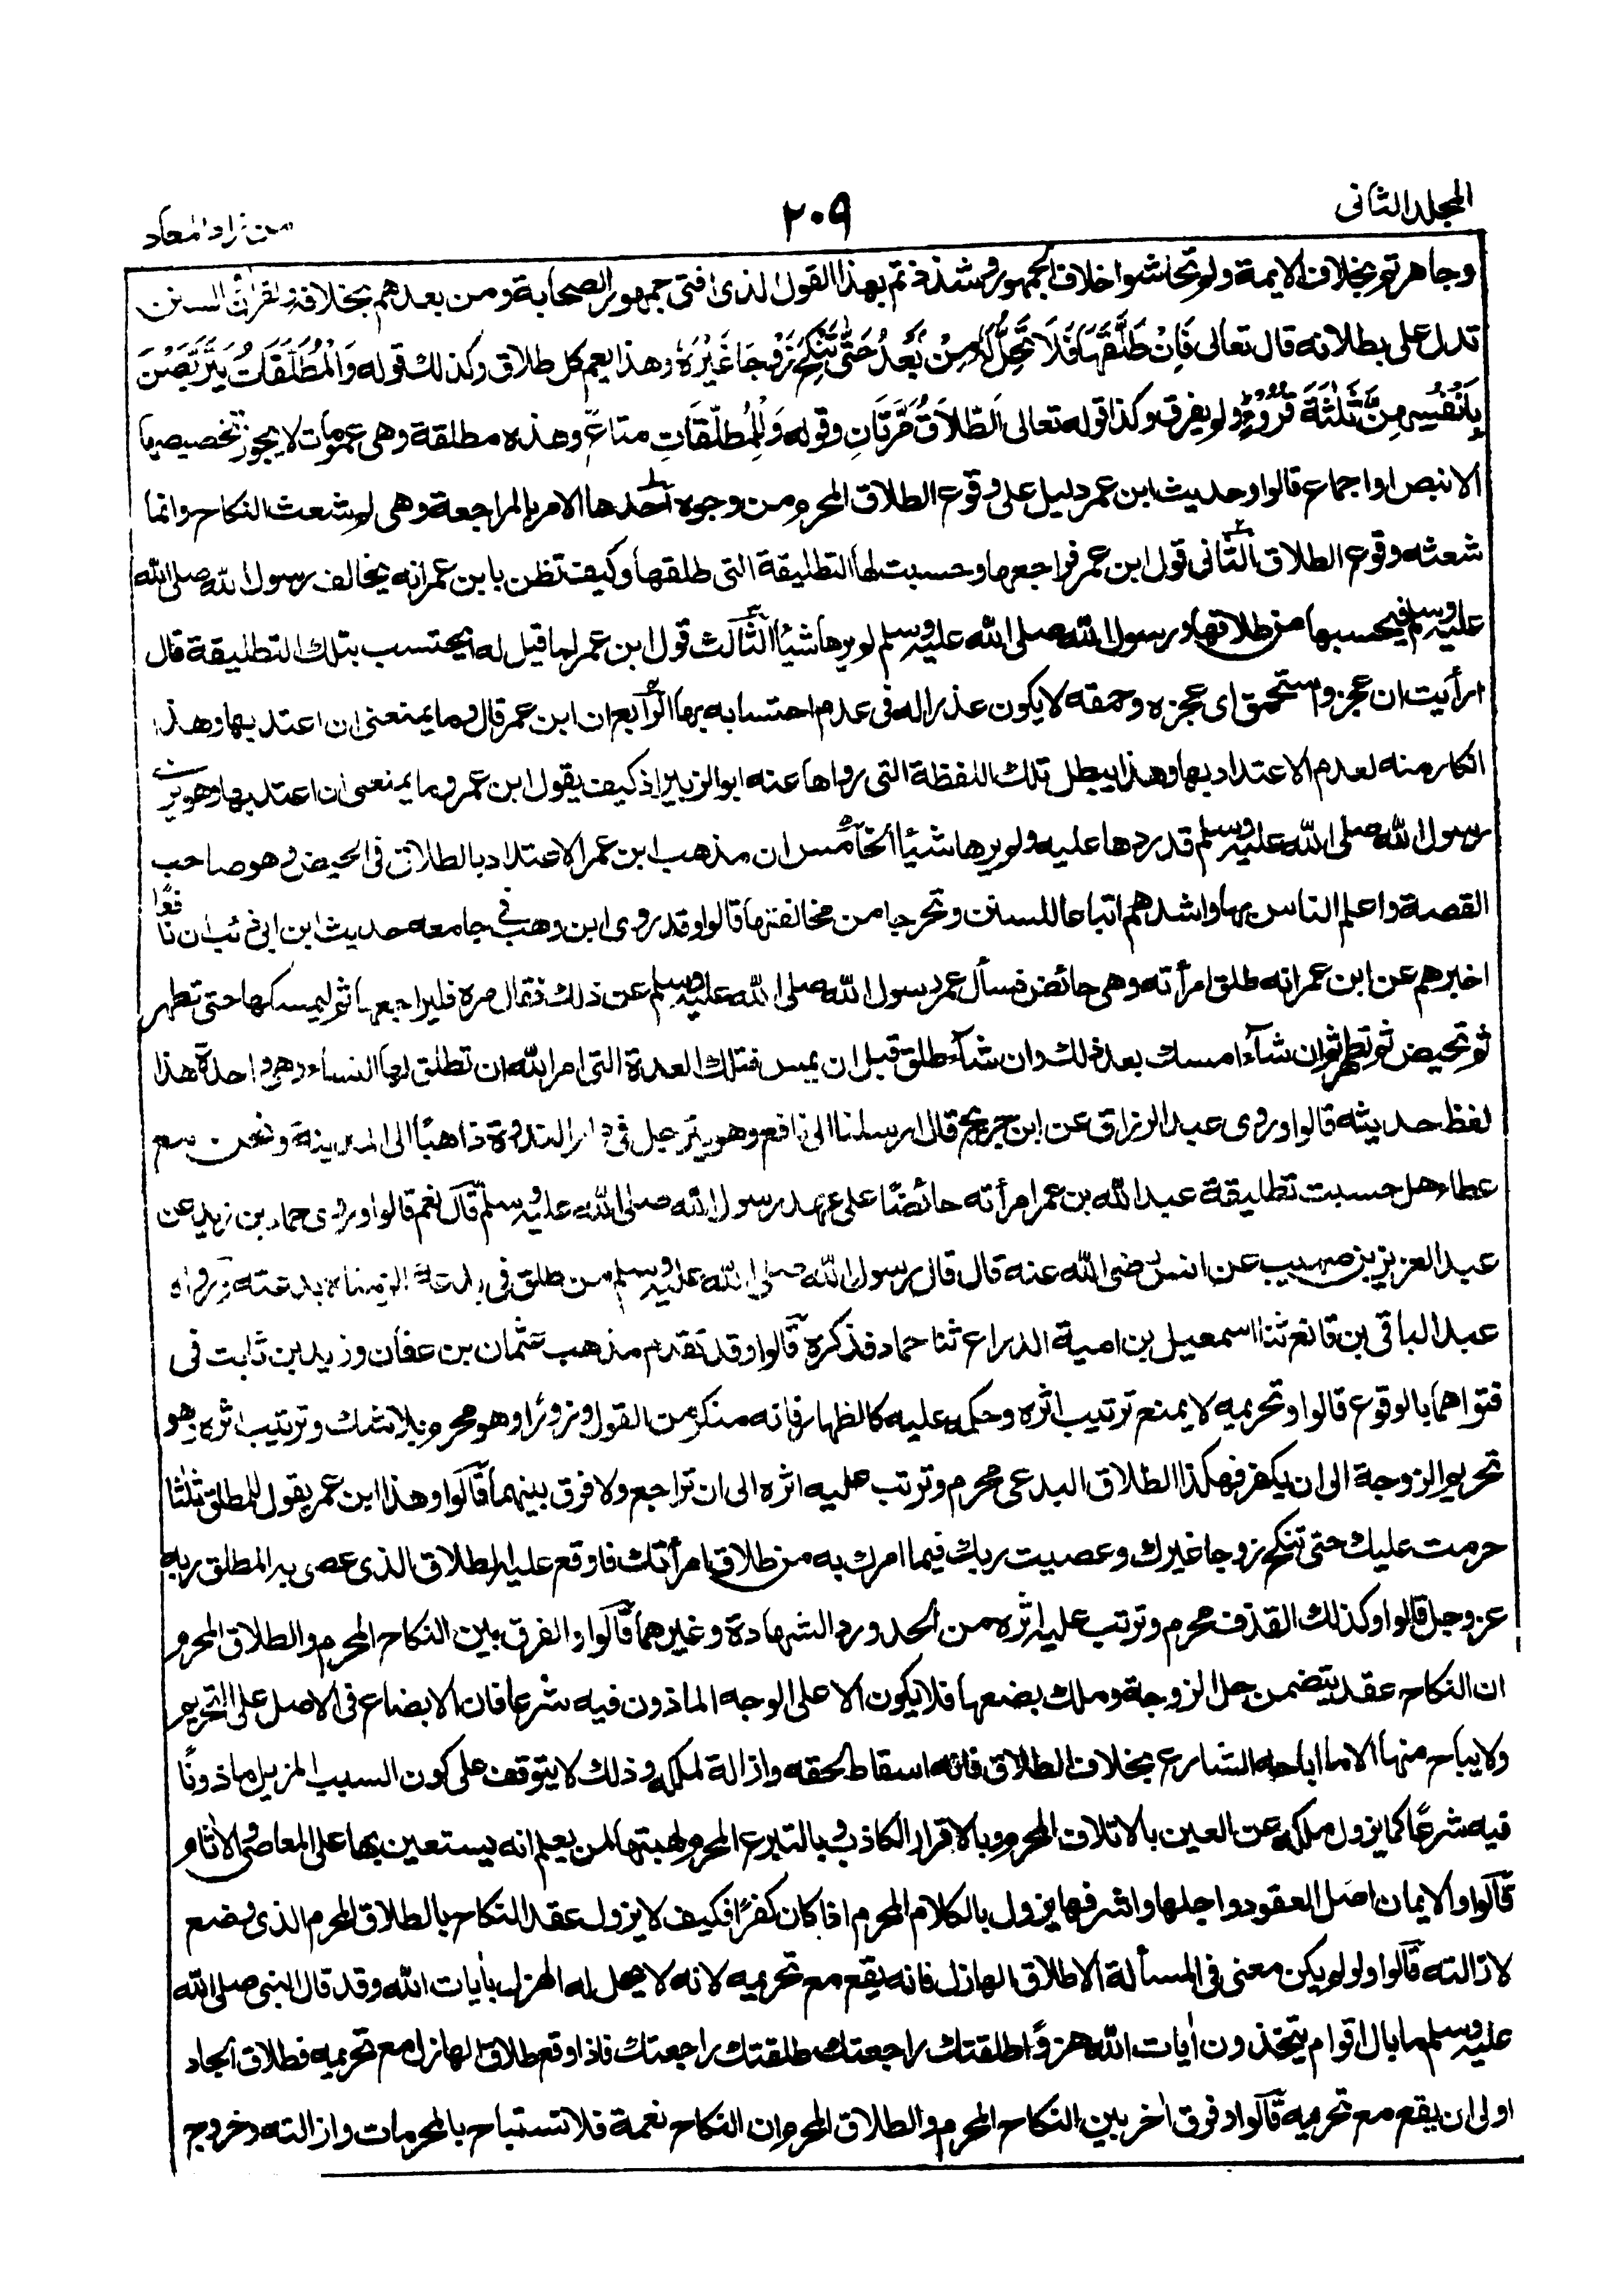 المجلد الثانى
٢٠٩
من زاد المعاد
وجاهرتم بخلاف الايمة ولم تتحاشوا خلاف الجمهور فشذذتم بهذا القول الذى افتى جمهور الصحابة ومن بعدهم بخلافه والقران والسنن
تدل على بطلانه قال تعالى فَاِنْ طَلَّقَهَا فَلَا تَحِلُّ لَهُ مِنْ بَعْدُ حَتّٰى تَنْكِحَ زَوْجًا غَيْرَهُ وهذا يعم كل طلاق وكذلك قوله وَالْمُطَلَّقَاتُ يَتَرَبَّصْنَ
بِاَنْفُسِهِنَّ ثَلٰثَةَ قُرُوْءٍ ولم يفرق وكذا قوله تعالى اَلطَّلَاقُ مَرَّتَانِ وقوله وَلِلْمُطَلَّقَاتِ متاعٌ وهذه مطلقة وهى عمومات لا يجوز تخصيصها
الا بنص او اجماع قالوا وحديث ابن عمر دليل على وقوع الطلاق المحرم من وجوه احدها الامر بالمراجعة وهى لم شعث النكاح وانما
شعثه وقوع الطلاق الثانى قول ابن عمر فراجعها وحسبت لها التطليقة التى طلقها وكيف تظن بابن عمر انه يخالف رسول الله صلى الله
عليه وسلم فيحسبها من طلاقها ورسول الله صلى الله عليه وسلم لم يرها شيئا الثالث قول ابن عمر لما قيل له ايحتسب بتلك التطليقة قال
ارأيت ان عجز واستحمق اى عجزه وحمقه لا يكون عذرا له فى عدم احتسابه بها الرابع ان ابن عمر قال وما يمنعنى ان اعتد بها وهذا
انكار منه لعدم الاعتداد بها وهذا يبطل تلك اللفظة التى رواها عنه ابو الزبير اذ كيف يقول ابن عمر وما يمنعنى ان اعتد بها وهو يرى
رسول الله صلى الله عليه وسلم قد ردها عليه ولم يرها شيئا الخامس ان مذهب ابن عمر الاعتداد بالطلاق فى الحيض وهو صاحب
القصة واعلم الناس بها واشدهم اتباعا للسنن وتحرجا من مخالفتها قالوا وقد روى ابن وهب فى جامعه حديث ابن ابى ذئب ان نافعًا
اخبرهم عن ابن عمر انه طلق امرأته وهى حائض فسأل عمر رسول الله صلى الله عليه وسلم عن ذلك فقال مره فليراجعها ثم ليمسكها حتى تطهر
ثم تحيض ثم تطهر ثم ان شاء امسك بعد ذلك وان شاء طلق قبل ان يمس فتلك العدة التى امر الله ان تطلق لها النساء وهى واحدة هذا
لفظ حديثه قالوا وروى عبد الرزاق عن ابن جريج قال ارسلنا الى نافع وهو يترجل فى دار الندوة ذاهبًا الى المدينة ونحن مع
عطاء هل حسبت تطليقة عبد الله بن عمر امرأته حائضًا على عهد رسول الله صلى الله عليه وسلم قال نعم قالوا وروى حماد بن زيد عن
عبد العزيز بن صهيب عن انس رضى الله عنه قال قال رسول الله صلى الله عليه وسلم من طلق فى بدعة الزمناه بدعته رواه
عبد الباقى بن قانع ثنا اسمعيل بن امية الذراع ثنا حماد فذكره قالوا وقد تقدم مذهب عثمان بن عفان وزيد بن ثابت فى
فتواهما بالوقوع قالوا وتحريمه لا يمنع ترتيب اثره وحكمه عليه كالظهار فانه منكر من القول وزورًا وهو محرم بلا شك وترتيب اثره هو
تحريم الزوجة الى ان يكفر فهكذا الطلاق البدعى محرم وترتب عليه اثره الى ان تراجع ولا فرق بينهما قالوا وهذا ابن عمر يقول للمطلق ثلثا
حرمت عليك حتى تنكح زوجا غيرك وعصيت ربك فيما امرك به من طلاق امرأتك فاوقع عليه الطلاق الذى عصى به المطلق ربه
عز وجل قالوا وكذلك القذف محرم وترتب عليه اثره من الحد ورد الشهادة وغيرهما قالوا والفرق بين النكاح المحرم والطلاق المحرم
ان النكاح عقد يتضمن حل الزوجة وملك بضعها فلا يكون الا على الوجه الماذون فيه شرعا فان الابضاع فى الاصل على التحريم
ولا يباح منها الا ما اباحه الشارع بخلاف الطلاق فانه اسقاط لحقه وازالة لملكه وذلك لا يتوقف على كون السبب المزيل ماذونًا
فيه شرعًا كما يزول ملكه عن العين بالاتلاف المحرم وبالاقرار الكاذب وبالتبرع المحرم كهبتها لمن يعلم انه يستعين بها على المعاصى والاثام
قالوا والايمان اصل العقود واجلها واشرفها يزول بالكلام المحرم اذا كان كفرًا فكيف لا يزول عقد النكاح بالطلاق المحرم الذى وضع
لازالته قالوا ولو لم يكن معنى فى المسألة الا طلاق الهازل فانه يقع مع تحريمه لانه لا يحل له الهزل بأيات الله وقد قال النبى صلى الله
عليه وسلم ما بال اقوام يتخذون أيات الله هزوًا طلقتك راجعتك طلقتك راجعتك فاذا وقع طلاق الهازل مع تحريمه فطلاق الجاد
اولى ان يقع مع تحريمه قالوا وفرق اخر بين النكاح المحرم والطلاق المحرم ان النكاح نعمة فلا تستباح بالمحرمات وازالته وخروج